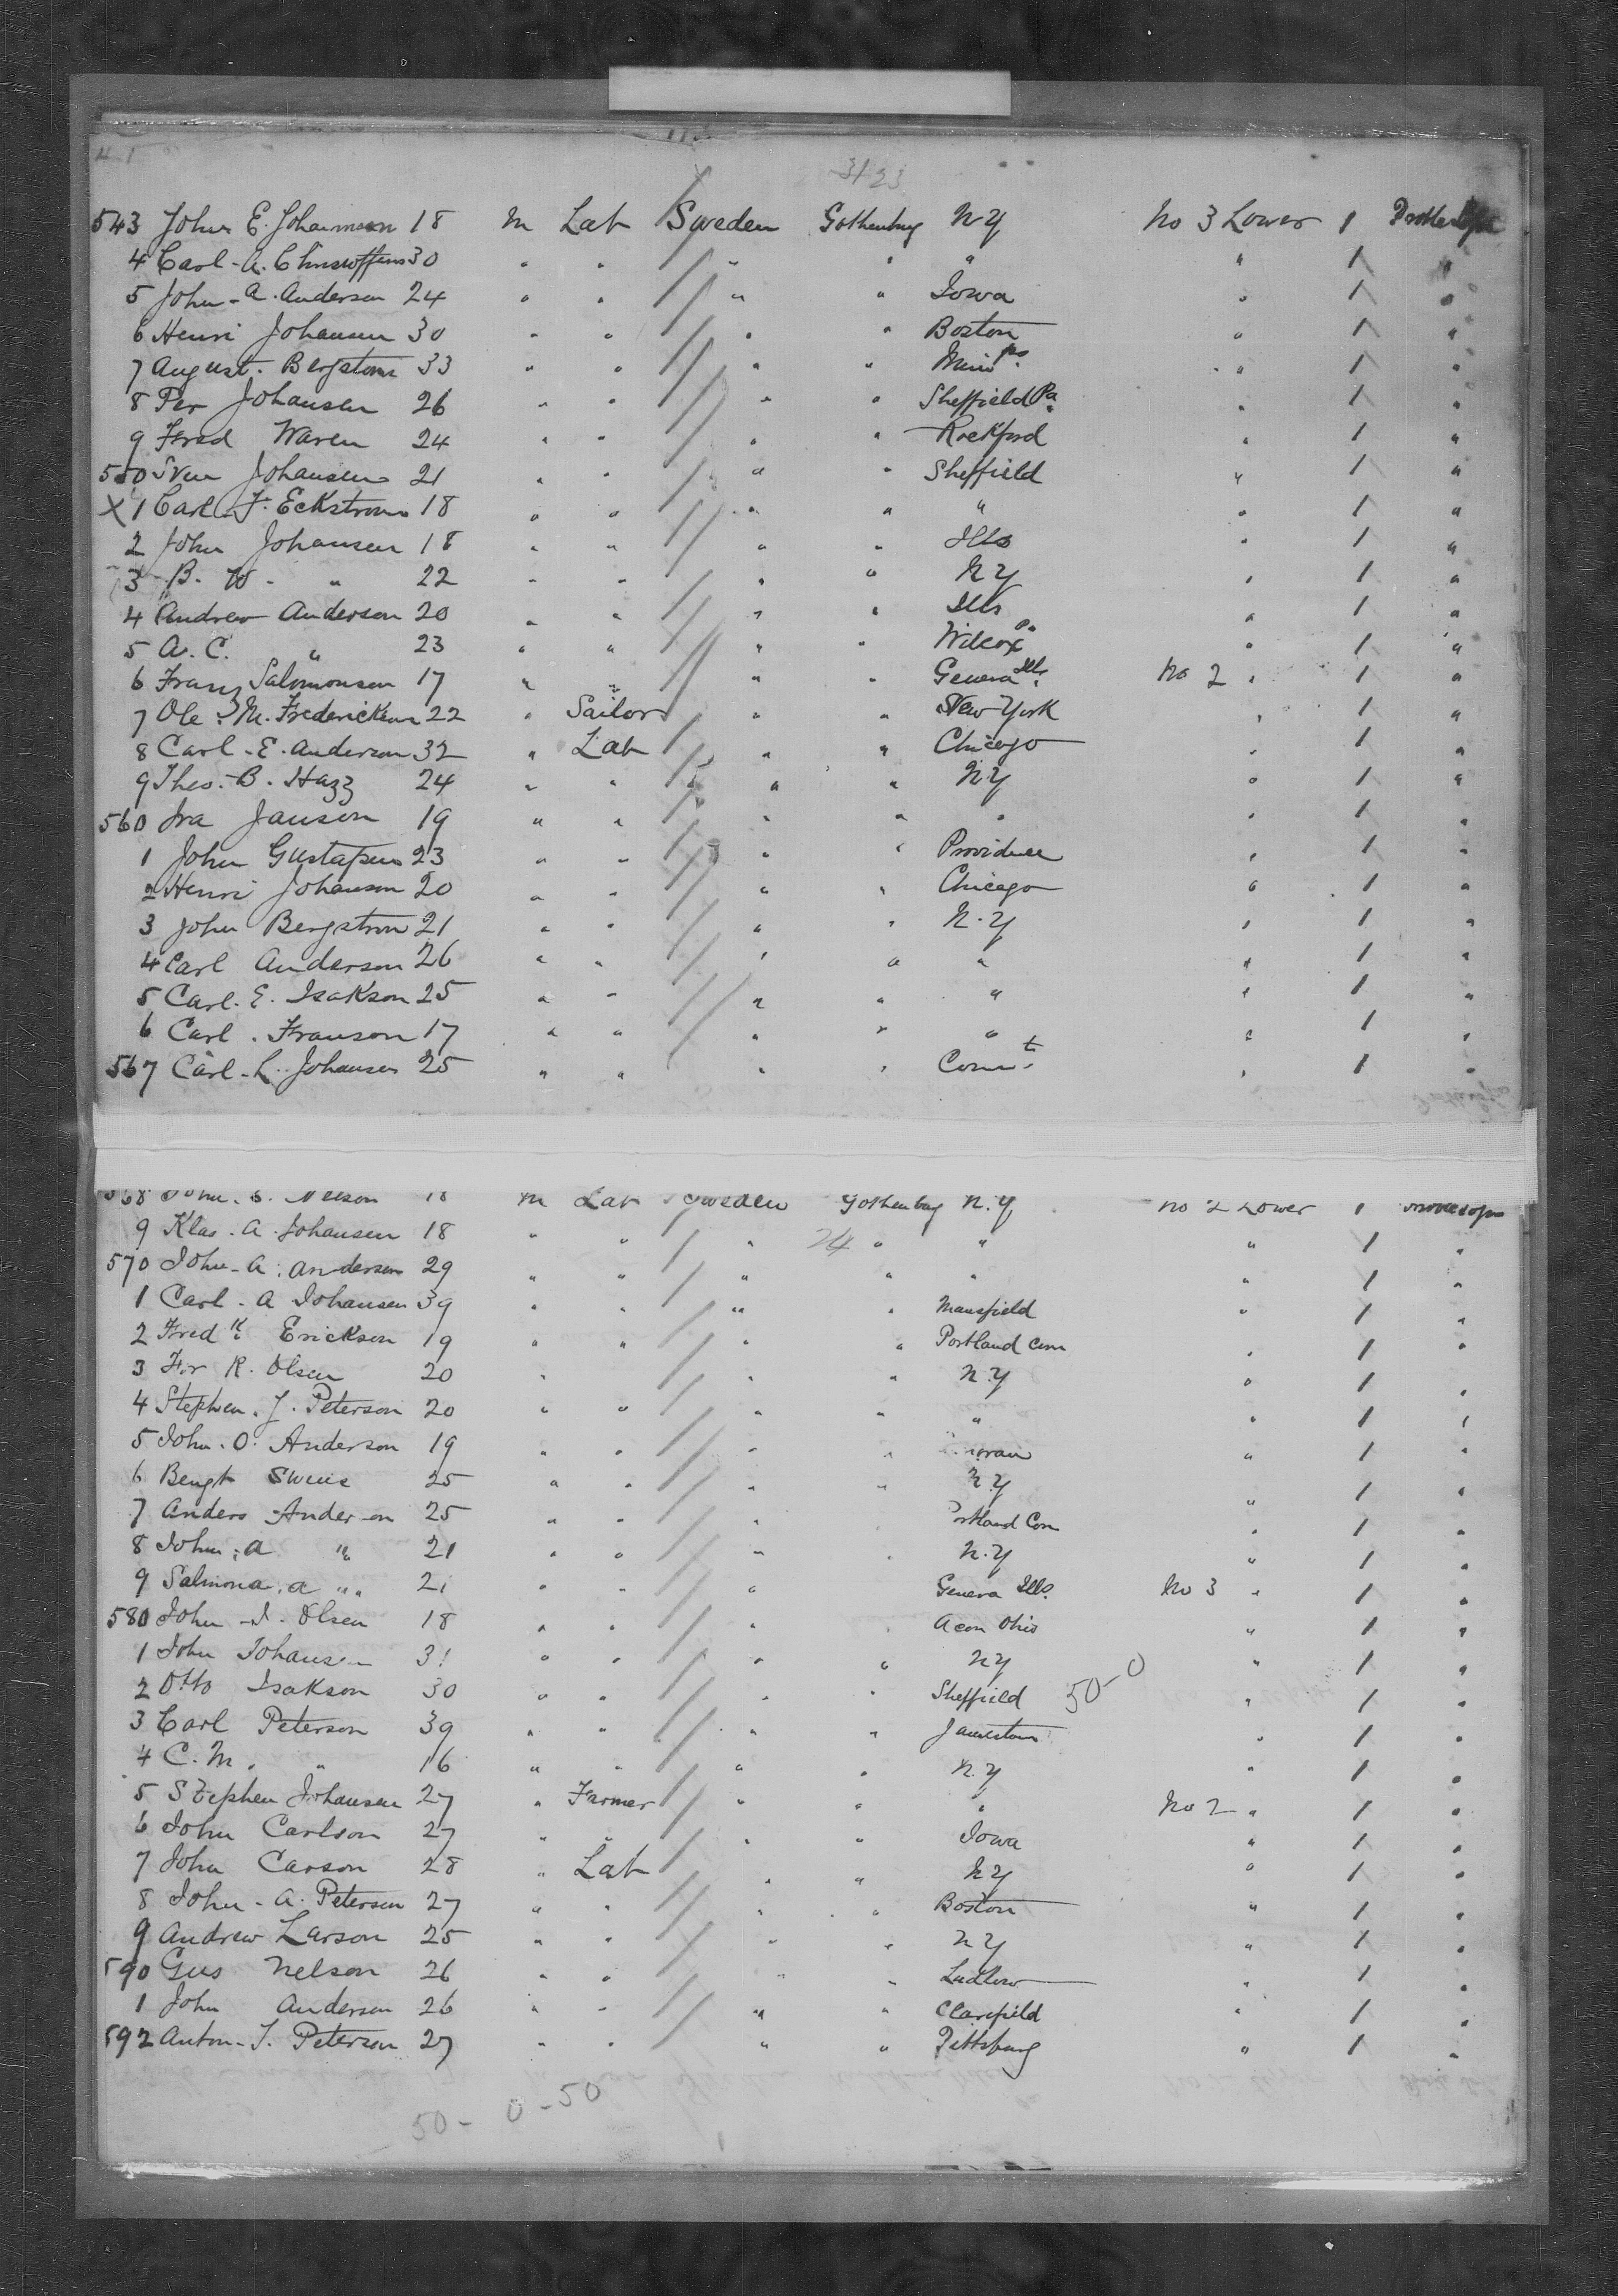 543 John E. Johannson 18 m Lab Sweden Gothenburg N Y No 3 Lower 1
4 Carl - A. 30 " " " " " " 1 "
5 John - A. Anderson 24 " " " " Iowa " 1 "
6 Henri Johansen 30 " " " " Boston " 1 "
7 August. Bergstrom 33 " " " " " 1 "
8 Per Johansen 26 " " " " Sheffield Pa " 1 "
9 Fred Waren 24 " " " " Rockford " 1 "
550 Sven Johansen 21 " " " " Sheffield " 1 "
X 1 Carl F. Eckstrom 18 " " " " " " 1 "
2 John Johansen 18 " " " " Ills " 1 "
3 B. W - " 22 " " " " N Y " 1 "
4 Andrew Anderson 20 " " " " Ills " 1 "
5 A. C. " 23 " " " " Wilcox Pa " 1 "
6 Franz Salomonsen 17 " " " " Geneva Ills. No 2 " 1 "
7 Ole. M. Fredericksen 22 " Sailor " " New York " 1 "
8 Carl - E. Anderson 32 " Lab " " Chicago " 1 "
9 Theo. B. Hazz 24 " " " " N Y " 1 "
560 Ira Janson 19 " " " " " " 1 "
1 John Gustafsen 23 " " " " Providence " 1 "
2 Henri Johanson 20 " " " " Chicago " 1 "
3 John Bergstrom 21 " " " " N. Y " 1 "
4 Carl Anderson 26 " " " " " " 1 "
5 Carl. E. Isakson 25 " " " " " " 1 "
6 Carl . Franson 17 " " " " " " 1 "
567 Carl - L. Johansen 25 " " " " Connt. " 1 "
568 John. S. Nelson 18 m Lab Sweden Gothenburg N. Y No 2 Lower 1
9 Klas. A. Johansen 18 " " " 24 " " " 1 "
570 John - A. Anderson 29 " " " " " " 1 "
1 Carl - A Johansen 39 " " " " Mansfield " 1 "
2 Fredk Erickson 19 " " " " Portland Conn " 1 "
3 R. Olsen 20 " " " " N. Y " 1 "
4 Stephen. J. Peterson 20 " " " " " " 1 "
5 John. O. Anderson 19 " " " " " 1 "
6 Bengt 25 " " " " N. Y " 1 "
7 Anders Anderson 25 " " " " Portland Con " 1 "
8 John. A " 21 " " " " N. Y " 1 "
9 Salmona. A " 21 " " " " Geneva Ills. No 3 " 1 "
580 John - I. Olsen 18 " " " " Acon Ohio " 1 "
1 John Johansen 31 " " " " N Y " 1 "
2 Otto Isakson 30 " " " " Sheffield 50-0 " 1 "
3 Carl Peterson 39 " " " " Jamestown " 1 "
4 C. M. " 16 " " " " N. Y " 1 "
5 Stephen Johansen 27 " Farmer " " " No 2 " 1 "
6 John Carlson 27 " " " " Iowa " 1 "
7 John Carson 28 " Lab " " N Y " 1 "
8 John - A. Peterson 27 " " " " Boston " 1 "
9 Andrew Larson 25 " " " " N Y " 1 "
590 Gus Nelson 26 " " " " Ludlow " 1 "
1 John Anderson 26 " " " " Clarefield " 1 "
592 Anton - J. Peterson 27 " " " " Pittsburg " 1 "
50 - 0 - 50